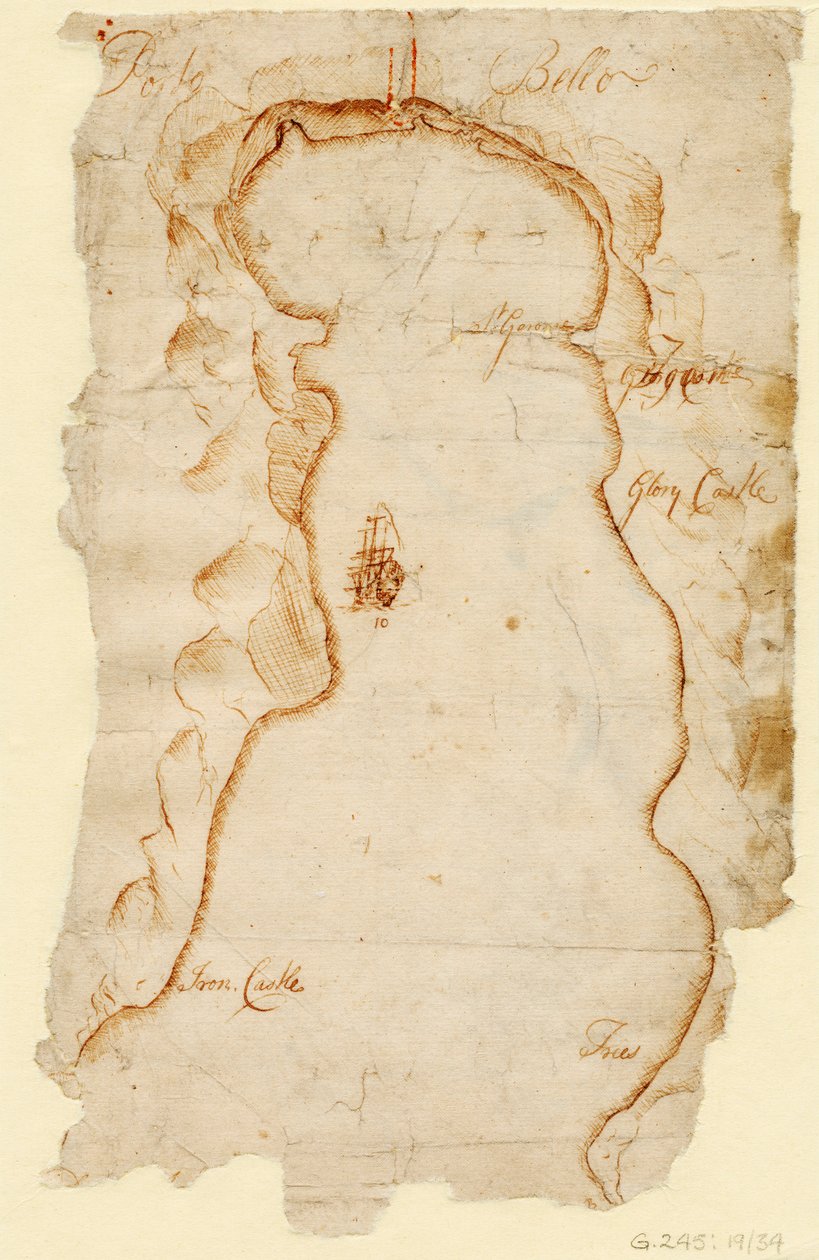 Porto Bello
St Gerom
Castle
Glory Castle
10
Iron. Castle
Trees
G.245:19/34